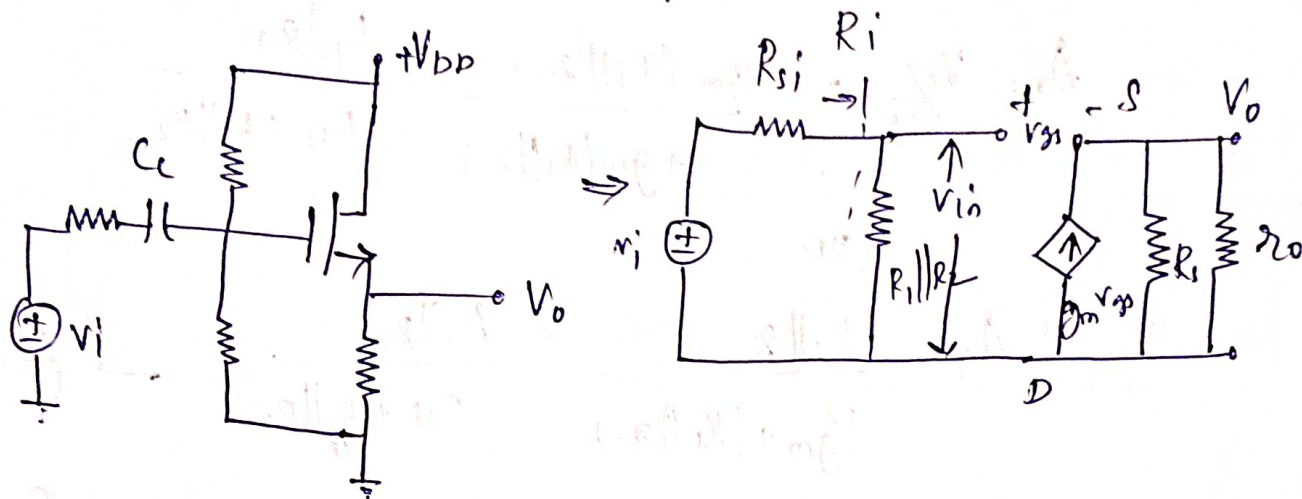 +VDD
Cc
Vi
Vo
⇒
Rsi
Ri
vi
R1||R2
Vin
+ vgs - S
gmvgs
Rs
ro
Vo
D